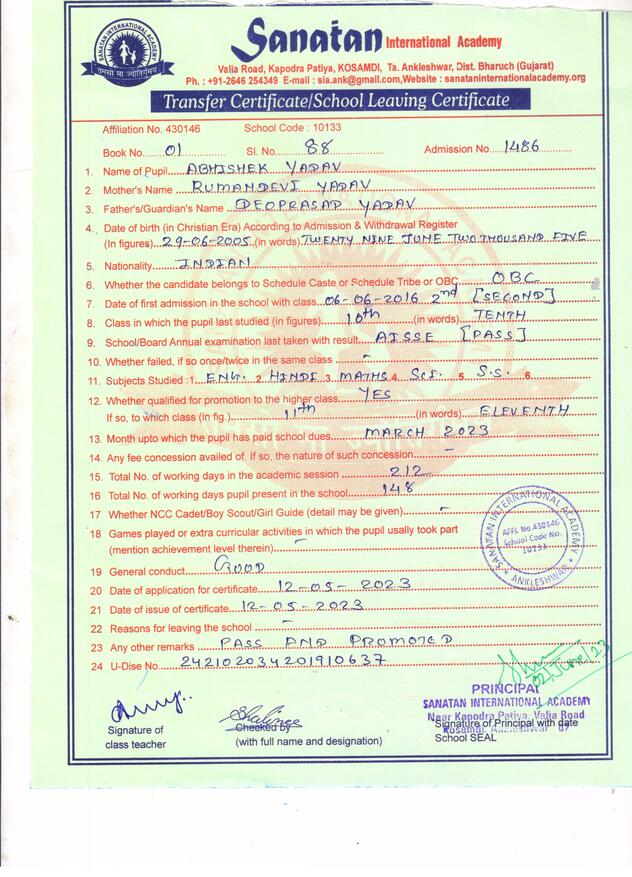 SANATAN INTERNATIONAL ACADEMY
तमसो मा ज्योतिर्गमय
Sanatan International Academy
Valia Road, Kapodra Patiya, KOSAMDI, Ta. Ankleshwar, Dist. Bharuch (Gujarat)
Ph. : +91-2646 254349 E-mail : sia.ank@gmail.com,Website : sanataninternationalacademy.org
Transfer Certificate/School Leaving Certificate
Affiliation No. 430146 School Code : 10133
Book No. 01 Sl. No. 88 Admission No. 1486
1. Name of Pupil ABHISHEK YADAV
2. Mother's Name RUMANDEVI YADAV
3. Father's/Guardian's Name DEOPRASAD YADAV
4. Date of birth (in Christian Era) According to Admission & Withdrawal Register
(In figures) 29-06-2005 (in words) TWENTY NINE JUNE TWO THOUSAND FIVE
5. Nationality INDIAN
6. Whether the candidate belongs to Schedule Caste or Schedule Tribe or OBC OBC
7. Date of first admission in the school with class 06-06-2016 2nd [SECOND]
8. Class in which the pupil last studied (in figures) 10th (in words) TENTH
9. School/Board Annual examination last taken with result AISSE [PASS]
10. Whether failed, if so once/twice in the same class -
11. Subjects Studied :1. ENG. 2. HINDI 3. MATHS 4. SCI. 5. S.S. 6.
12. Whether qualified for promotion to the higher class YES
If so, to which class (in fig.) 11th (in words) ELEVENTH
13. Month upto which the pupil has paid school dues MARCH 2023
14. Any fee concession availed of. If so, the nature of such concession -
15. Total No. of working days in the academic session 212
16 Total No. of working days pupil present in the school 148
17 Whether NCC Cadet/Boy Scout/Girl Guide (detail may be given) -
18 Games played or extra curricular activities in which the pupil usally took part
(mention achievement level therein) -
19 General conduct GOOD
20 Date of application for certificate 12-05-2023
21 Date of issue of certificate 12-05-2023
22 Reasons for leaving the school -
23 Any other remarks PASS AND PROMOTED
24 U-Dise No. 242102034201910637
SANATAN INTERNATIONAL ACADEMY
AFFL No.430146
School Code No.
10133
ANKLESHWAR
02/June/23
PRINCIPAL
SANATAN INTERNATIONAL ACADEMY
Near Kapodra Patiya, Valia Road
Signature of class teacher
Shalinee
Checked by
(with full name and designation)
Signature of Principal with date
School SEAL